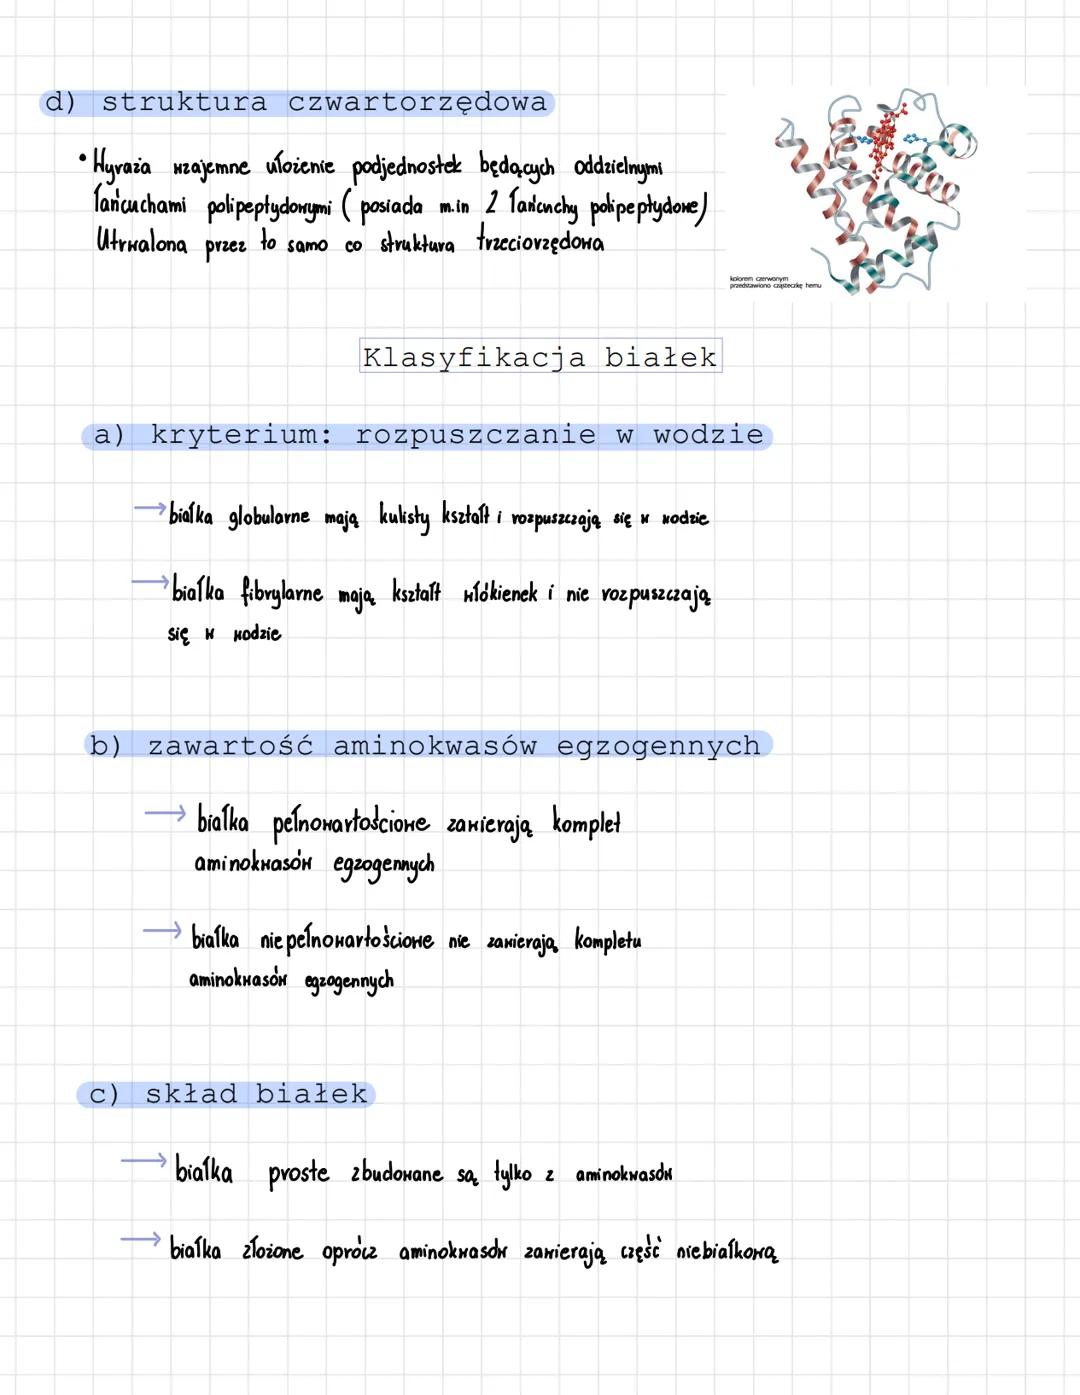 d) struktura czwartorzędowa
• Wyraża wzajemne ułożenie podjednostek będących oddzielnymi
łańcuchami polipeptydowymi ( posiada m.in 2 łańcuchy polipeptydowe)
Utrwalona przez to samo co struktura trzeciorzędowa
kolorem czerwonym
przedstawiono cząsteczkę hemu
Klasyfikacja białek
a) kryterium: rozpuszczanie w wodzie
→ białka globularne mają kulisty kształt i rozpuszczają się w wodzie
→ białka fibrylarne mają kształt włókienek i nie rozpuszczają
się w wodzie
b) zawartość aminokwasów egzogennych
→ białka pełnowartościowe zawierają komplet
aminokwasów egzogennych
→ białka niepełnowartościowe nie zawierają kompletu
aminokwasów egzogennych
c) skład białek
→ białka proste zbudowane są tylko z aminokwasów
→ białka złożone oprócz aminokwasów zawierają część niebiałkową